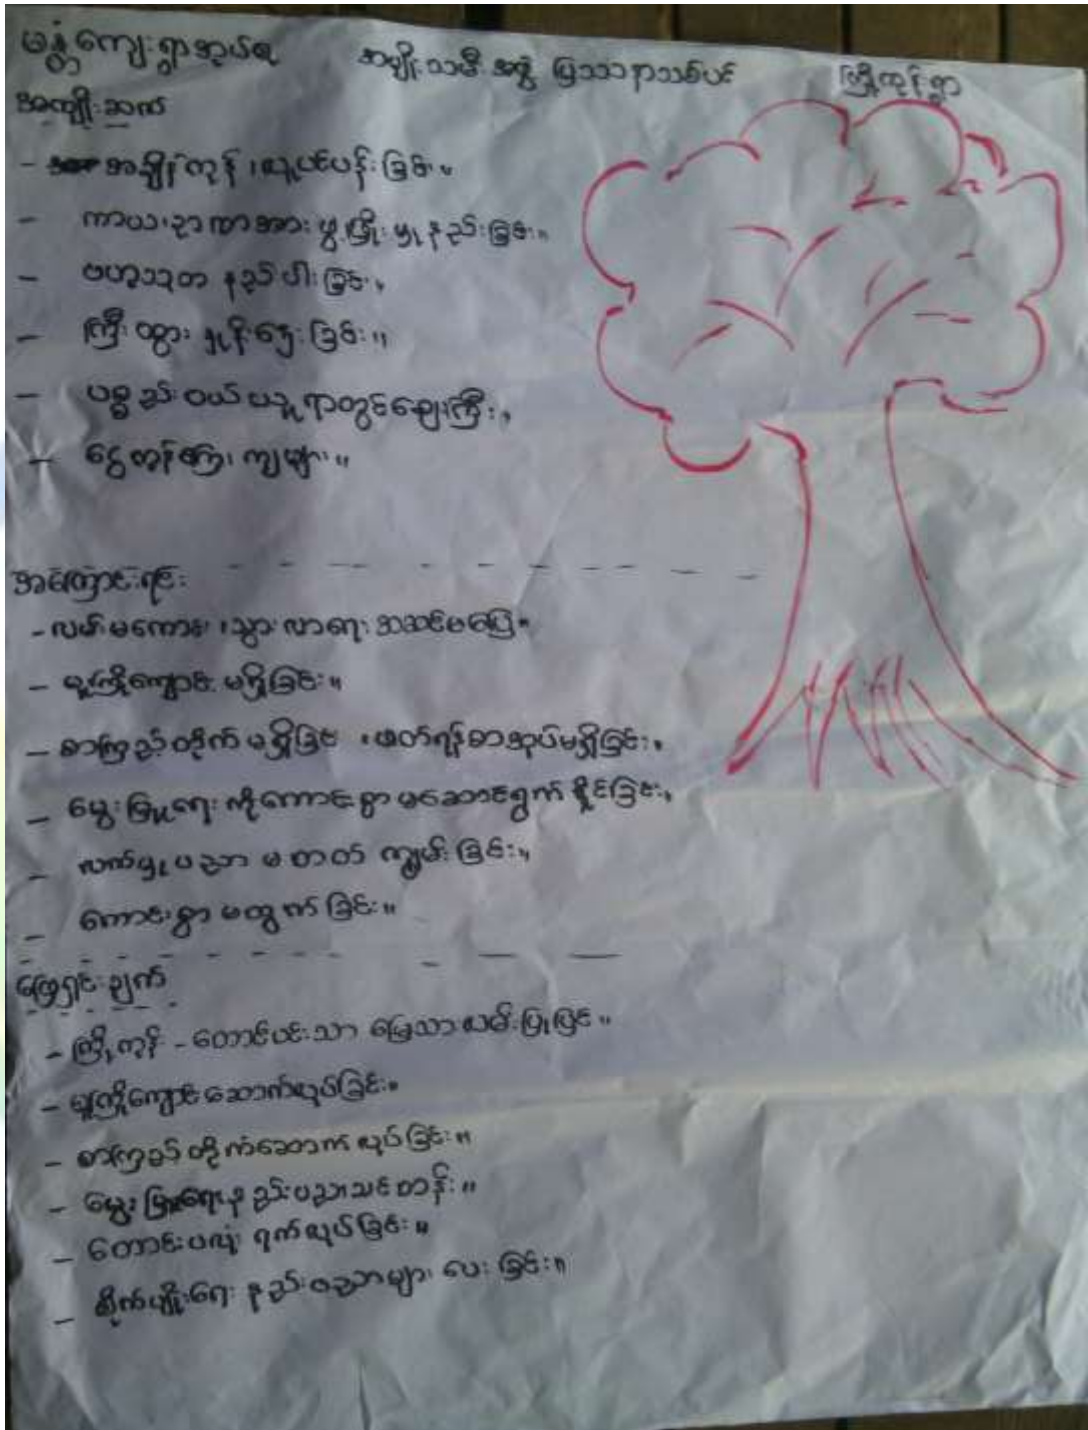 မန္တံကျေးရွာအုပ်စု အမျိုးသမီးအဖွဲ့ ပြဿနာသစ်ပင် ကြို့ကုန်းရွာ
အကျိုးဆက်
- အချိန်ကုန်၊ လူပင်ပန်းခြင်း။
- ကာယ၊ ဉာဏအား ဖွံ့ဖြိုးမှုနည်းခြင်း။
- ဗဟုသုတ နည်းပါးခြင်း။
- ကြီးထွားမှုနှေးခြင်း။
- ပစ္စည်းဝယ်ယူရာတွင်ဈေးကြီး။
- ငွေကုန်ကြေးကျများ။
အကြောင်းရင်း
- လမ်းမကောင်း၊ သွားလာရေးအဆင်မပြေ။
- မူကြိုကျောင်းမရှိခြင်း။
- စာကြည့်တိုက်မရှိခြင်း၊ ဖတ်ရန်စာအုပ်မရှိခြင်း။
- မွေးမြူရေးကိုကောင်းစွာမဆောင်ရွက်နိုင်ခြင်း။
- လက်မှုပညာ မတတ်ကျွမ်းခြင်း။
- ကောင်းစွာမထွက်ခြင်း။
ဖြေရှင်းချက်
- ကြို့ကုန်း - တောင်ပင်းသာ မြေသားလမ်းပြုပြင်။
- မူကြိုကျောင်းဆောက်လုပ်ခြင်း။
- စာကြည့်တိုက်ဆောက်လုပ်ခြင်း။
- မွေးမြူရေးနည်းပညာသင်တန်း။
- တောင်းပလုံးရက်လုပ်ခြင်း။
- စိုက်ပျိုးရေးနည်းပညာများပေးခြင်း။